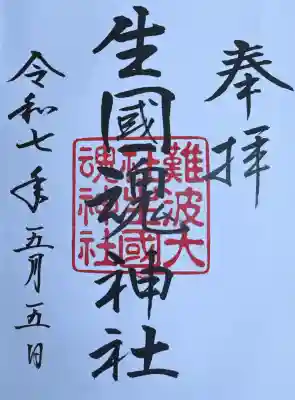 奉拝
生國魂神社
難波大
社生國
魂神社
令和七年五月五日